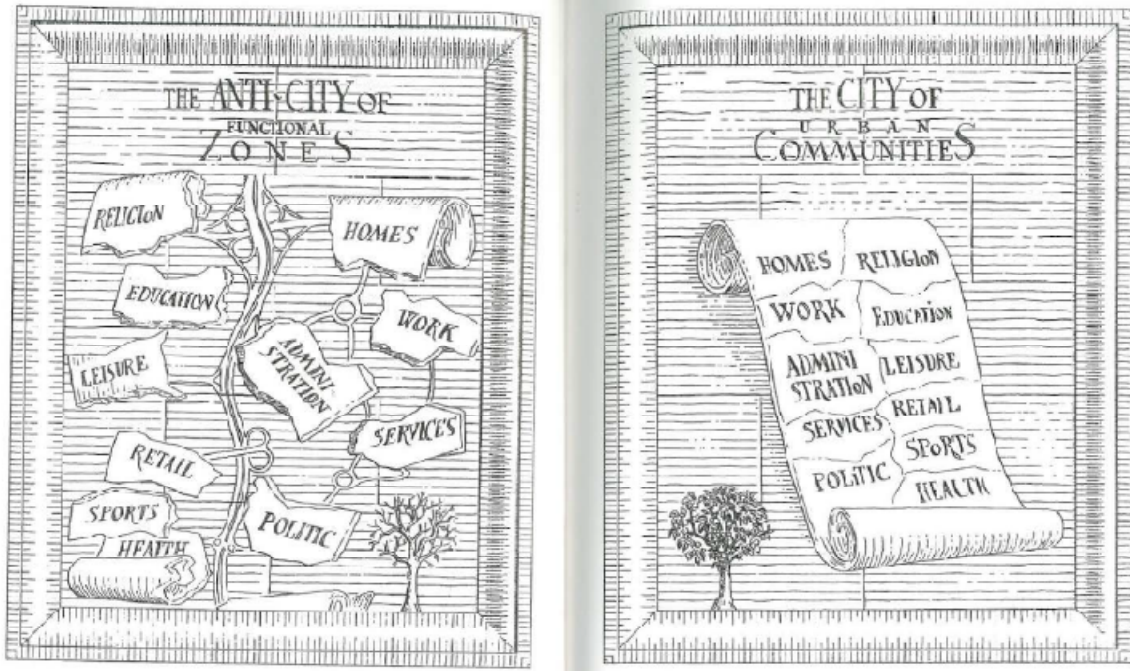 THE ANTI-CITY OF
FUNCTIONAL
ZONES
RELIGION
HOMES
EDUCATION
WORK
LEISURE
ADMINI
STRATION
SERVICES
RETAIL
SPORTS
POLITIC
HEALTH
THE CITY OF
URBAN
COMMUNITIES
HOMES RELIGION
WORK EDUCATION
ADMINI
STRATION
LEISURE
SERVICES
RETAIL
POLITIC
SPORTS
HEALTH